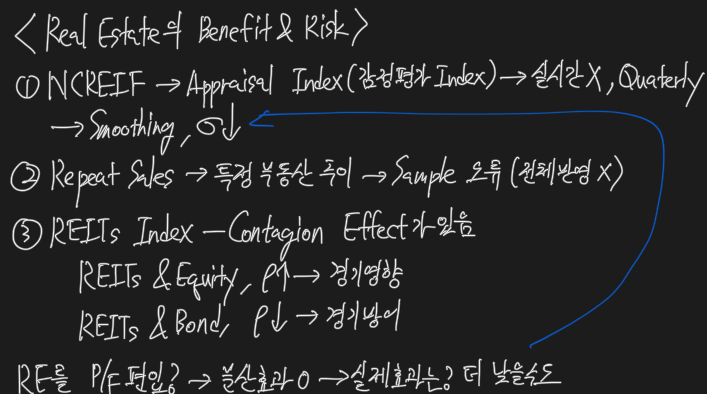 <Real Estate의 Benefit & Risk>
① NCREIF → Appraisal Index(감정평가 Index) → 실시간 X, Quaterly
→ Smoothing, σ↓
② Repeat Sales → 특정 부동산 추이 → Sample 오류 (전체반영 X)
③ REITs Index — Contagion Effect가 있음
REITs & Equity, ρ↑ → 경기영향
REITs & Bond, ρ↓ → 경기방어
RE를 P/F 편입? → 분산효과 O → 실제효과는? 더 낮을수도